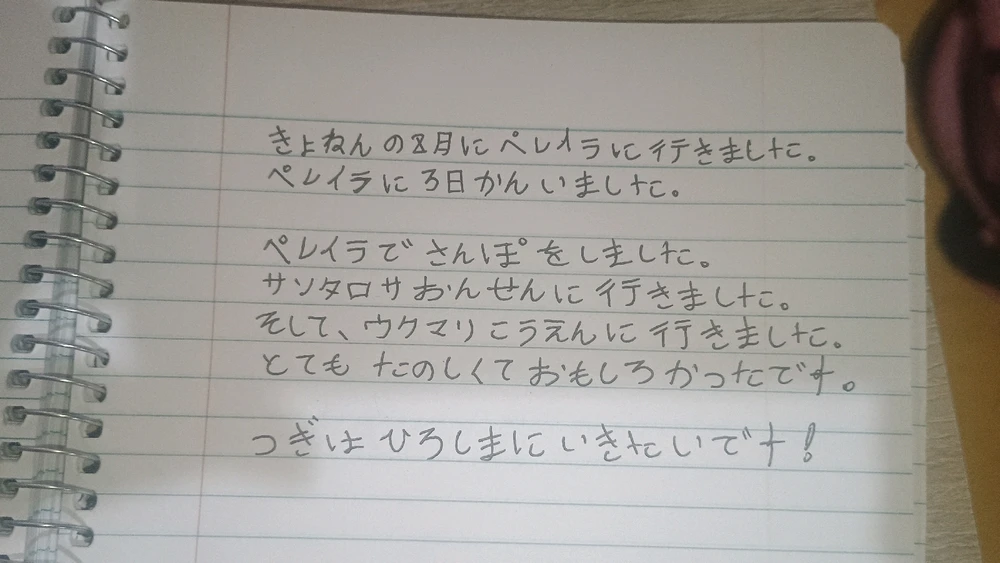 きょねんの8月にペレイラに行きました。
ペレイラに3日かんいました。
ペレイラでさんぽをしました。
サンタロサおんせんに行きました。
そして、ウクマリこうえんに行きました。
とてもたのしくておもしろかったです。
つぎはひろしまにいきたいです!